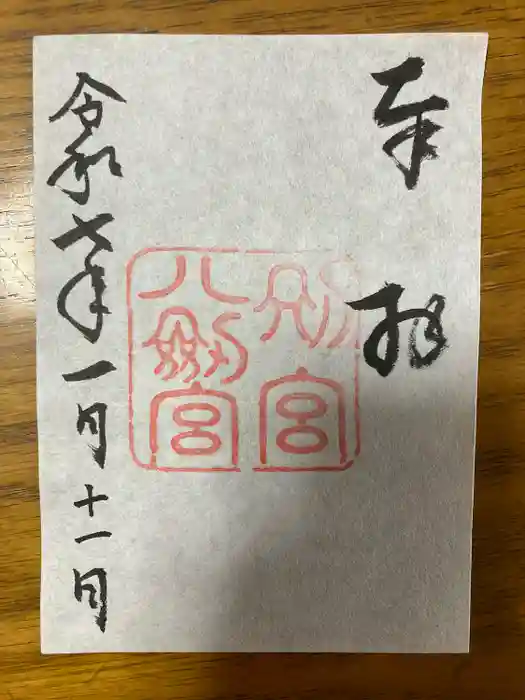 奉拝
別宮
八劔宮
令和七年一月十一日